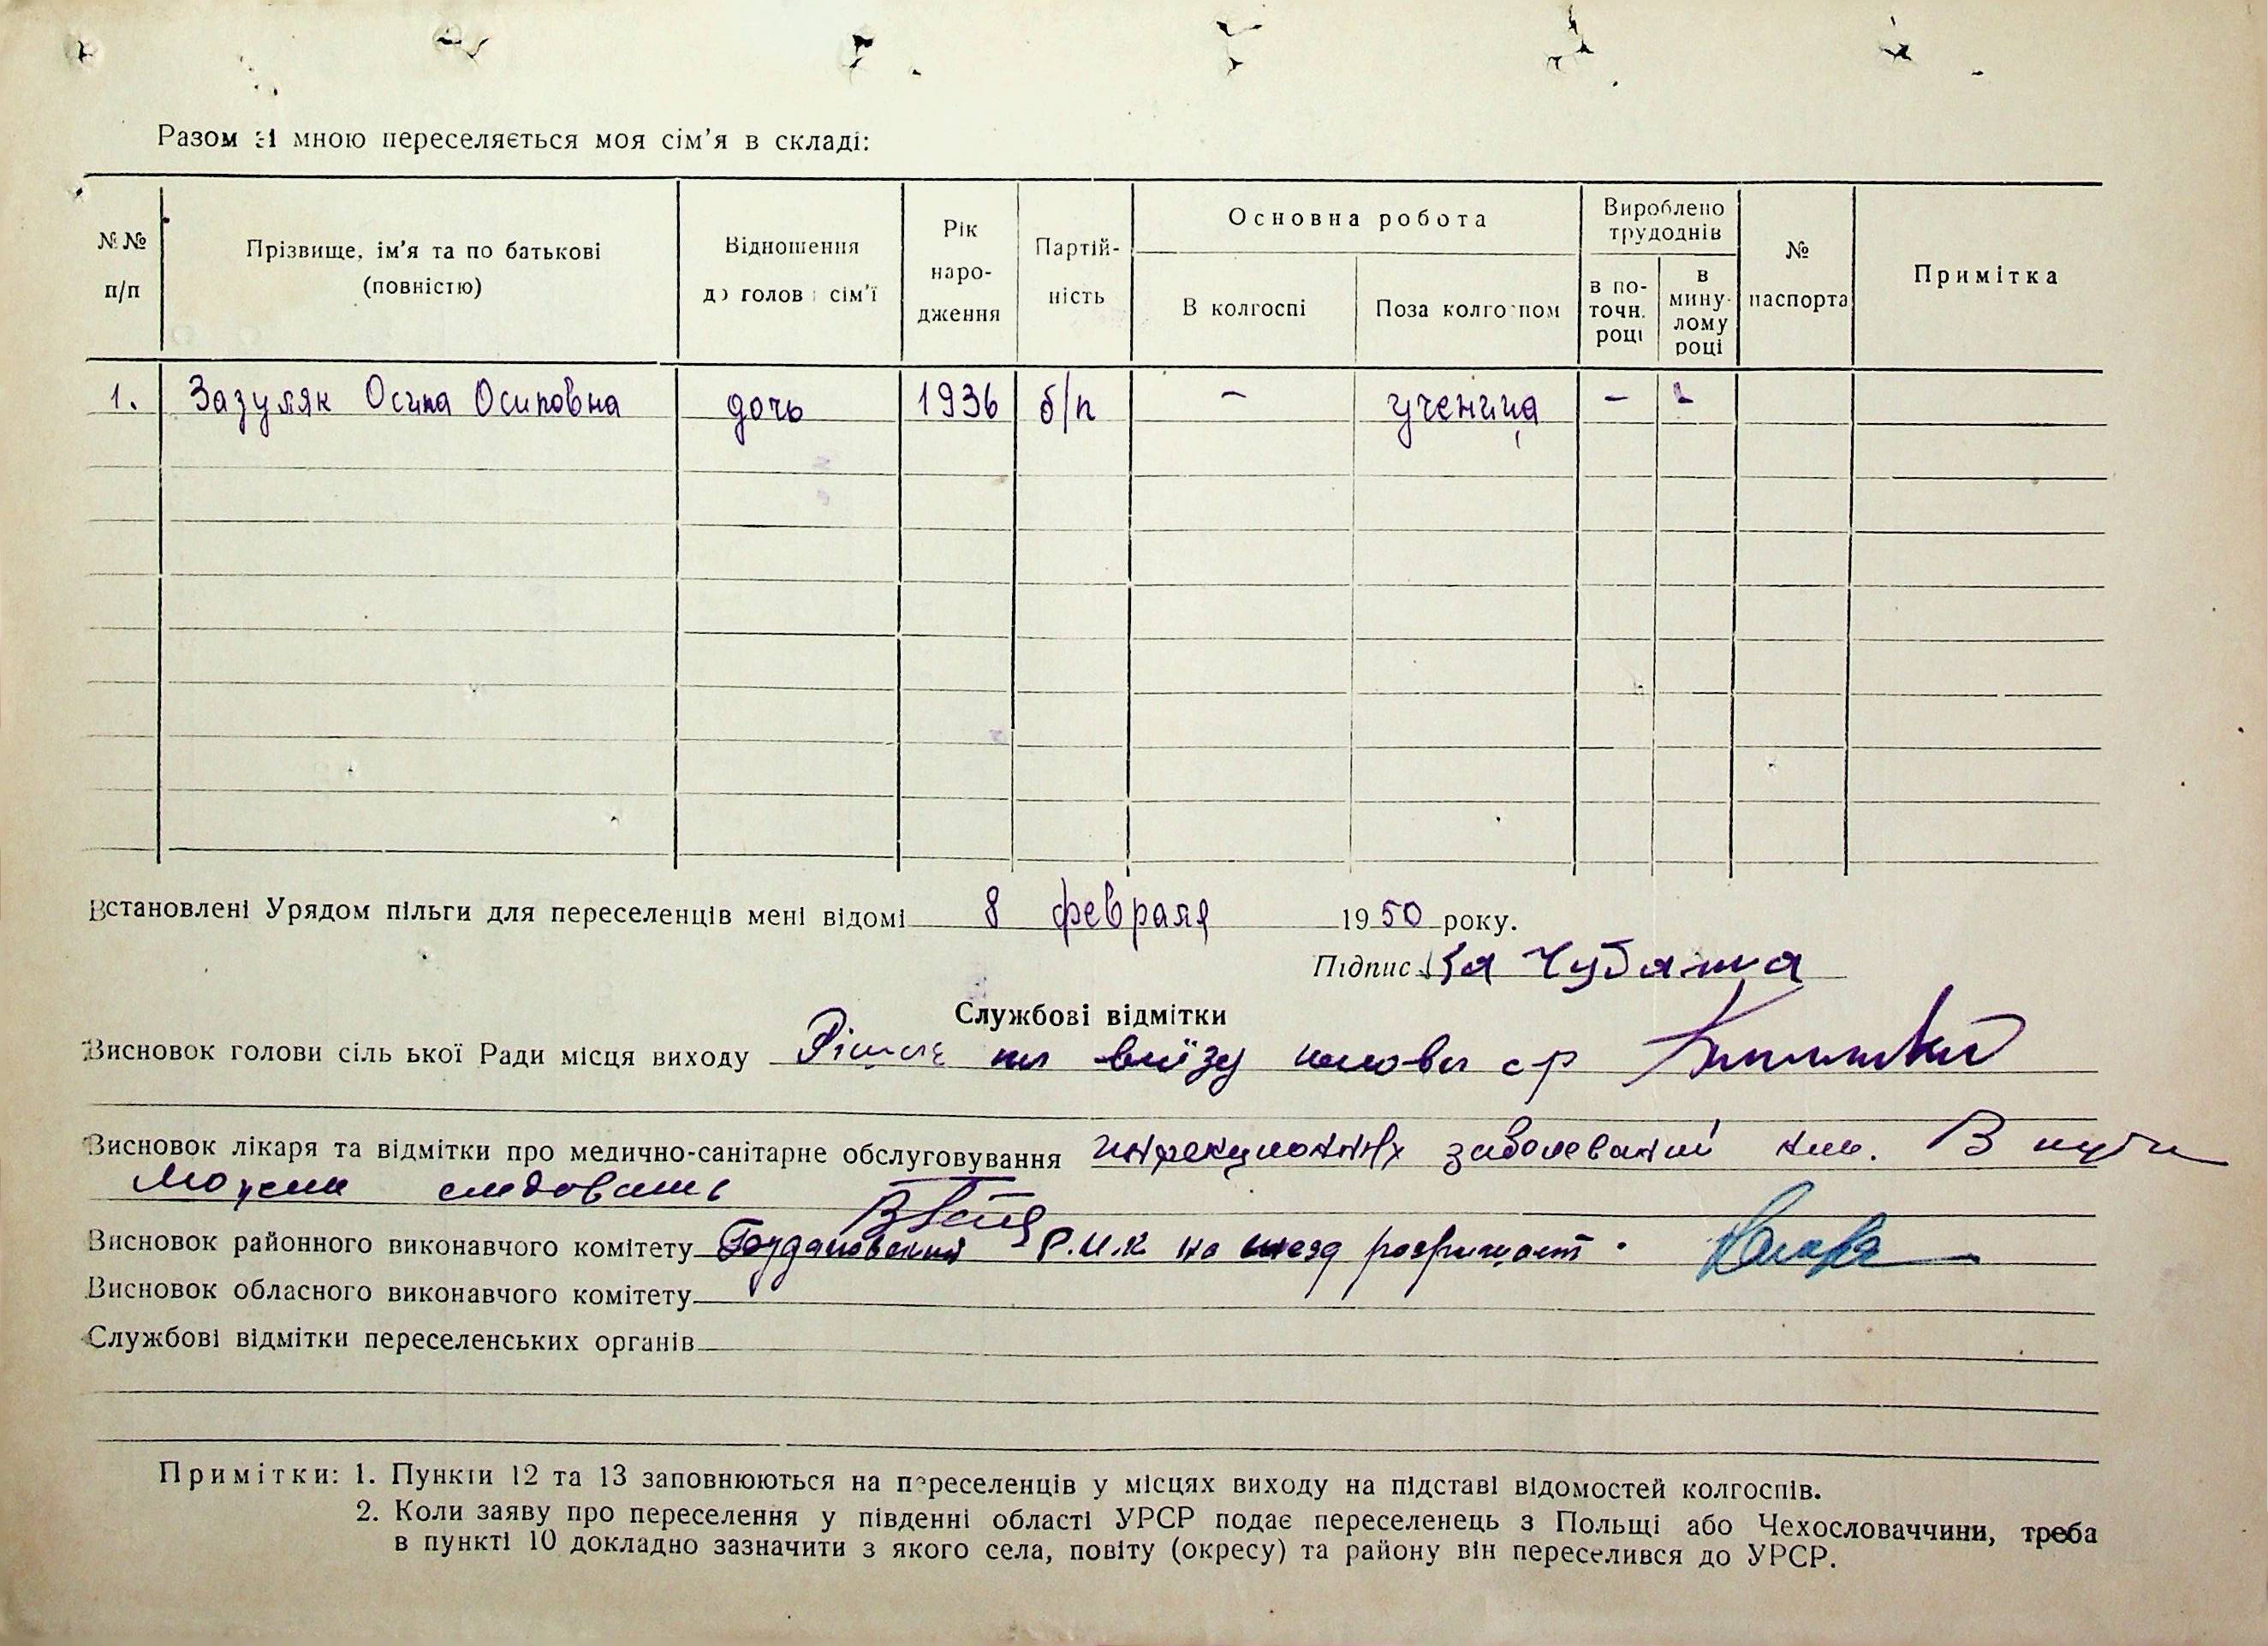 Разом зі мною переселяється моя сім'я в складі:
№№ п/п
Прізвище, ім'я та по батькові (повністю)
Відношення до голови сім'ї
Рік народження
Партійність
Основна робота
В колгоспі
Поза колгоспом
Вироблено трудоднів
в поточн. році
в минулому році
№ паспорта
Примітка
1. Зазуляк Осипа Осиповна дочь 1936 б/п – ученица – -
Встановлені Урядом пільги для переселенців мені відомі 8 февраля 1950 року.
Підпис за
Службові відмітки
Висновок голови сільської Ради місця виходу на виїзу голова с/р
Висновок лікаря та відмітки про медично-санітарне обслуговування инфекционных заболеваний нет. В пути
Может следовать
Висновок районного виконавчого комітету Р.И.К на
Висновок обласного виконавчого комітету
Службові відмітки переселенських органів
Примітки: 1. Пункти 12 та 13 заповнюються на переселенців у місцях виходу на підставі відомостей колгоспів.
2. Коли заяву про переселення у південні області УРСР подає переселенець з Польщі або Чехословаччини, треба
в пункті 10 докладно зазначити з якого села, повіту (окресу) та району він переселився до УРСР.